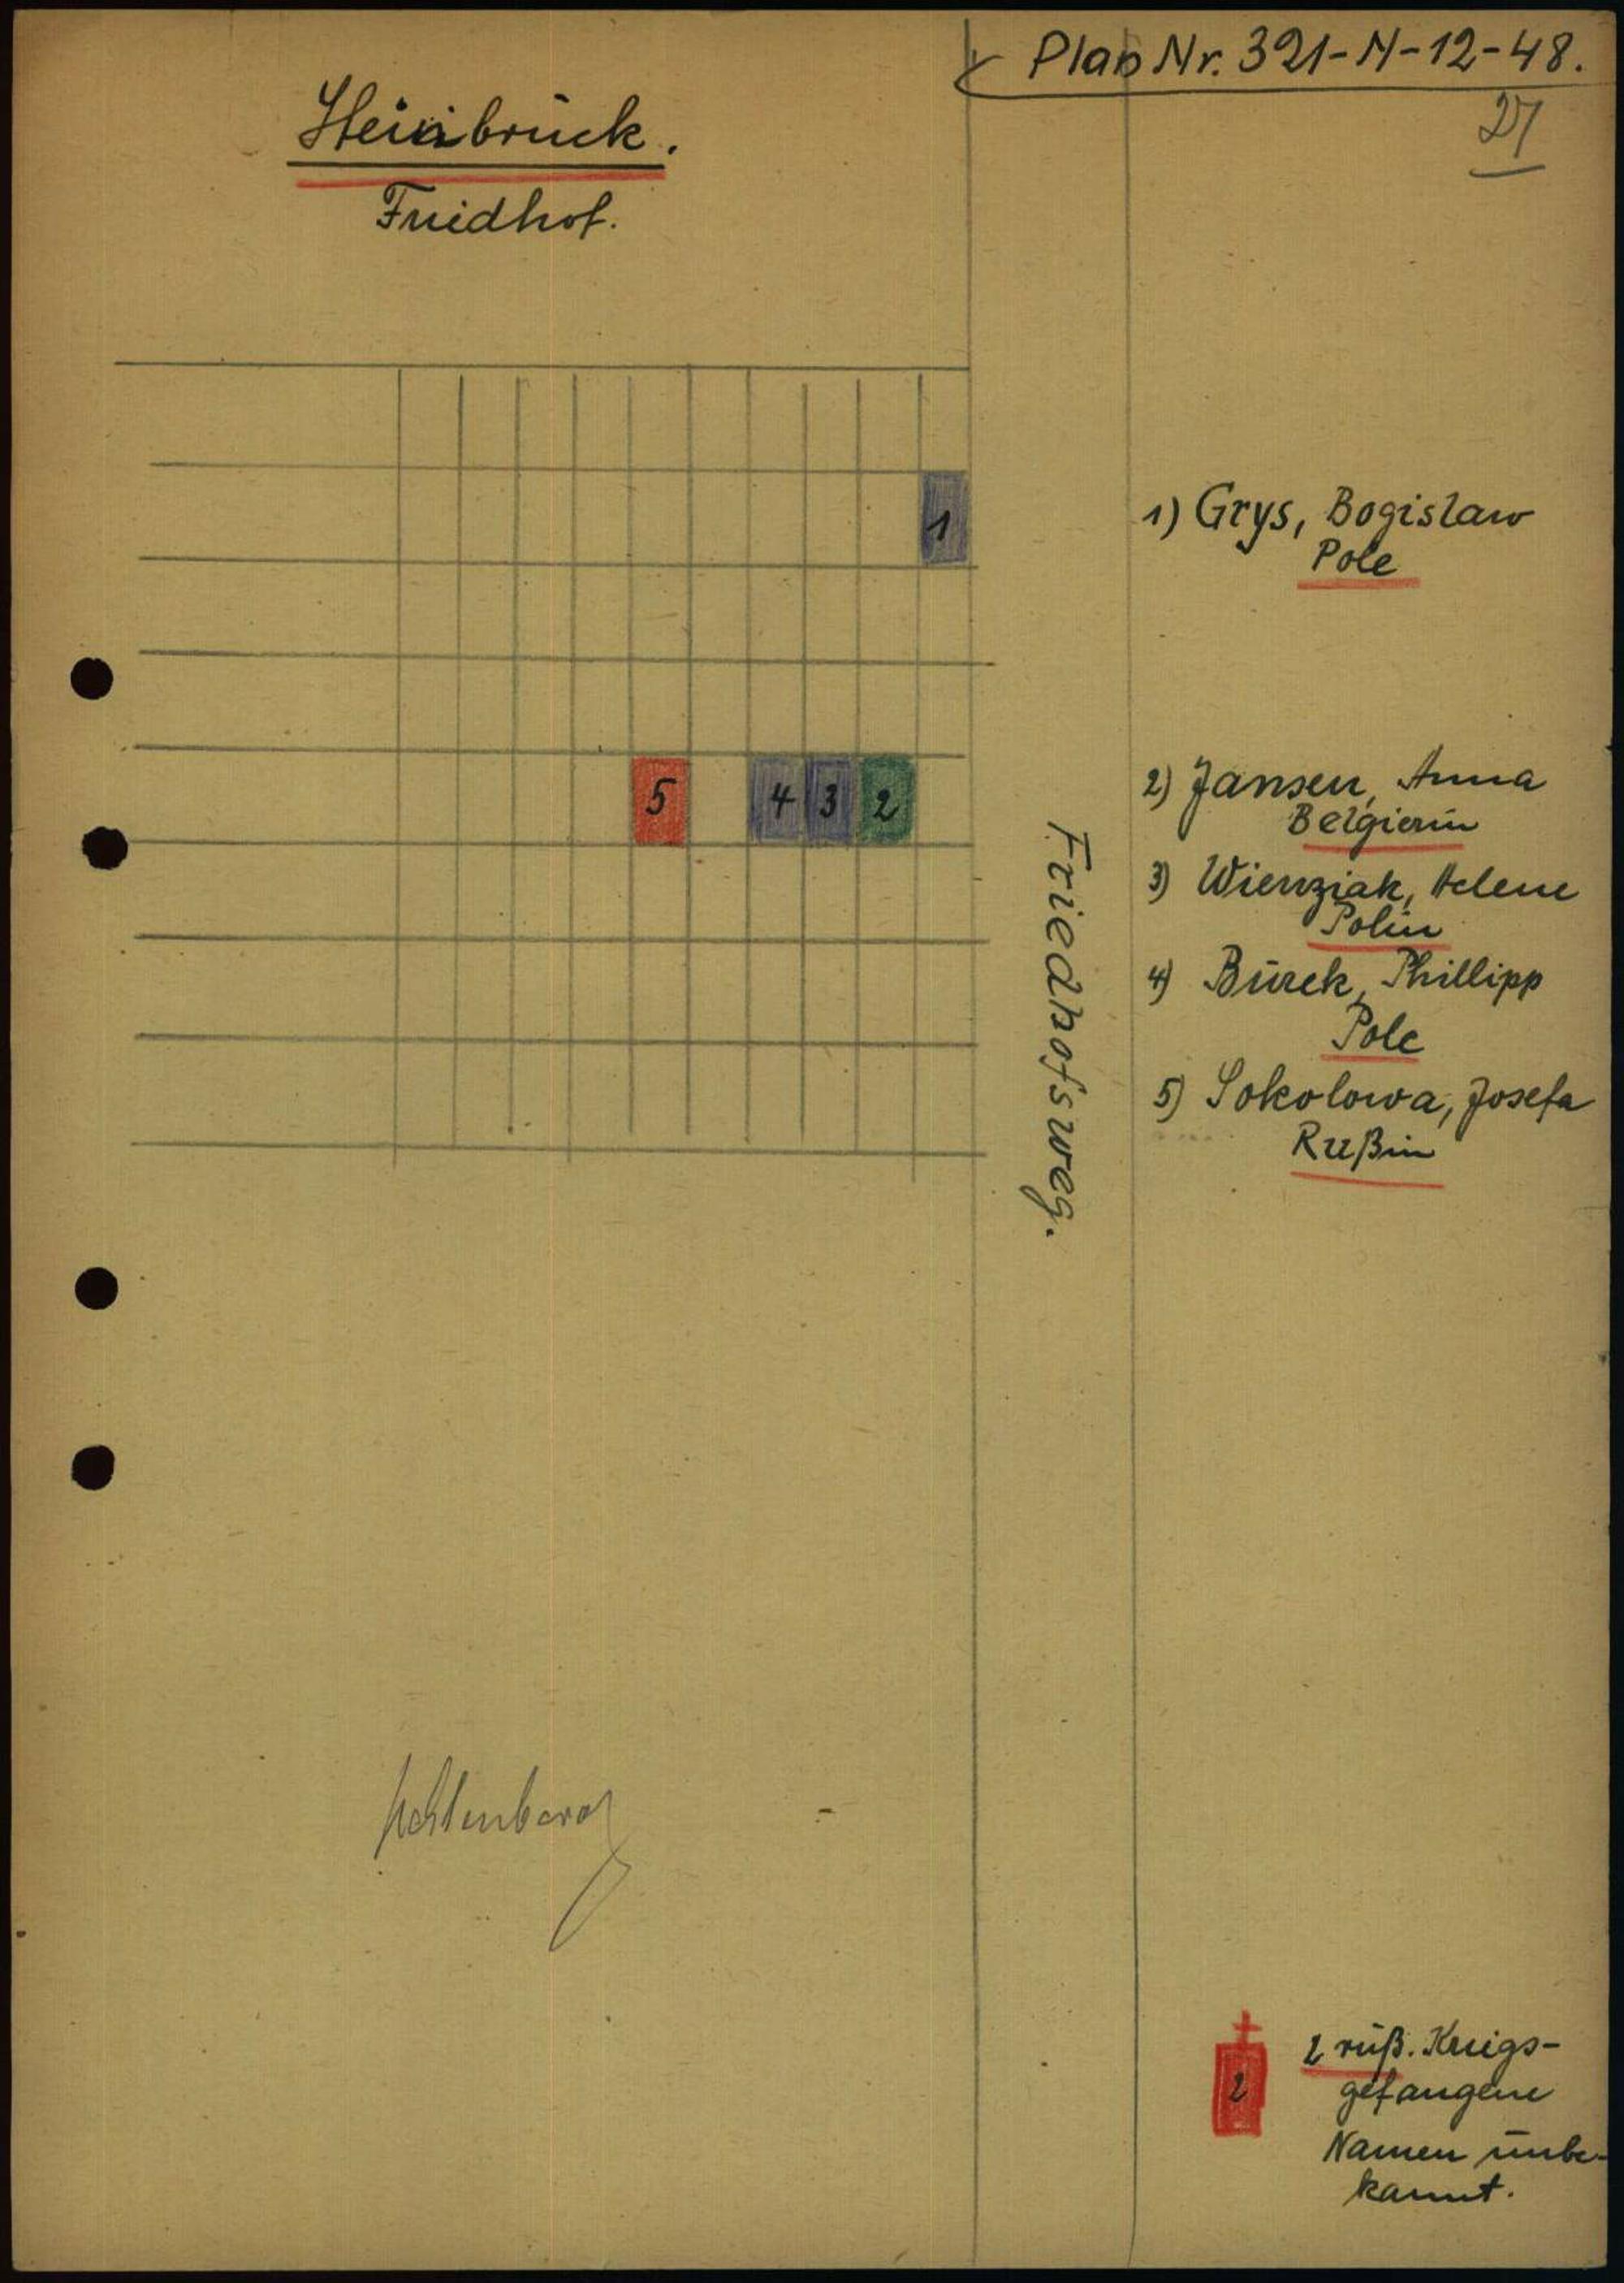 Plan Nr. 321-N-12-48.
27
Heinbrück.
Friedhof.
1
5 4 3 2
Friedhofsweg.
1) Grys, Bogislaw
Pole
2) Jansen, Anna
Belgierin
3) Wienziak, Helene
Polin
4) Burek, Phillipp
Pole
5) Sokolowa, Josefa
Rußin
2
2 ruß. Kriegs-
gefangene
Namen unbe-
kannt.